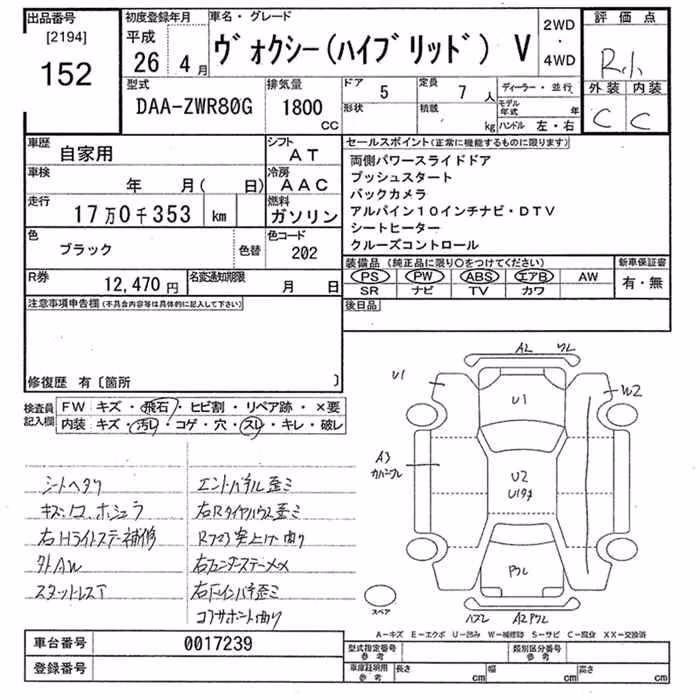 出品番号
[2194]
152
初度登録年月
平成
26 4月
車名・グレード
ヴォクシー(ハイブリッド) V
2WD
・
4WD
評価点
R小
外装 内装
C C
型式
DAA-ZWR80G
排気量
1800
CC
ドア 5
形状
定員 7 人
積載 kg
ディーラー・並行
モデル年式 年
ハンドル 左・右
車歴
自家用
シフト
AT
車検
年 月( 日)
冷房
AAC
走行
17万0千353 km
燃料
ガソリン
色
ブラック
色替
色コード
202
R券
12,470円
名変通知期限
月 日
セールスポイント(正常に機能するものに限ります)
両側パワースライドドア
プッシュスタート
バックカメラ
アルパイン10インチナビ・DTV
シートヒーター
クルーズコントロール
装備品(純正品に限り○をつけてください)
PS PW ABS エアB AW
SR ナビ TV カワ
新車保証書
有・無
後日品
注意事項申告欄(不具合内容等は具体的に記入して下さい)
修復歴 有〔箇所 〕
検査員
記入欄
FW キズ・飛石・ヒビ割・リペア跡・×要
内装 キズ・汚レ・コゲ・穴・スレ・キレ・破レ
シートヘタリ
右Hライトステー補修
外AW
スタットレスT
エンドパネル歪ミ
右Rタイヤハウス歪ミ
Rフロア突上ゲ曲り
右フェンダーステーメメ
右Fインパネ歪ミ
コアサポート曲り
U1
A2
U1
W2
A3
カバーワレ
U2
スペア
A-キズ E-エクボ U-凹み W-補修跡 S-サビ C-腐食 XX-交換済
車台番号
0017239
登録番号
型式指定番号
参考
類別区分番号
参考
車庫証明用
参考
長さ cm
幅 cm
高さ cm